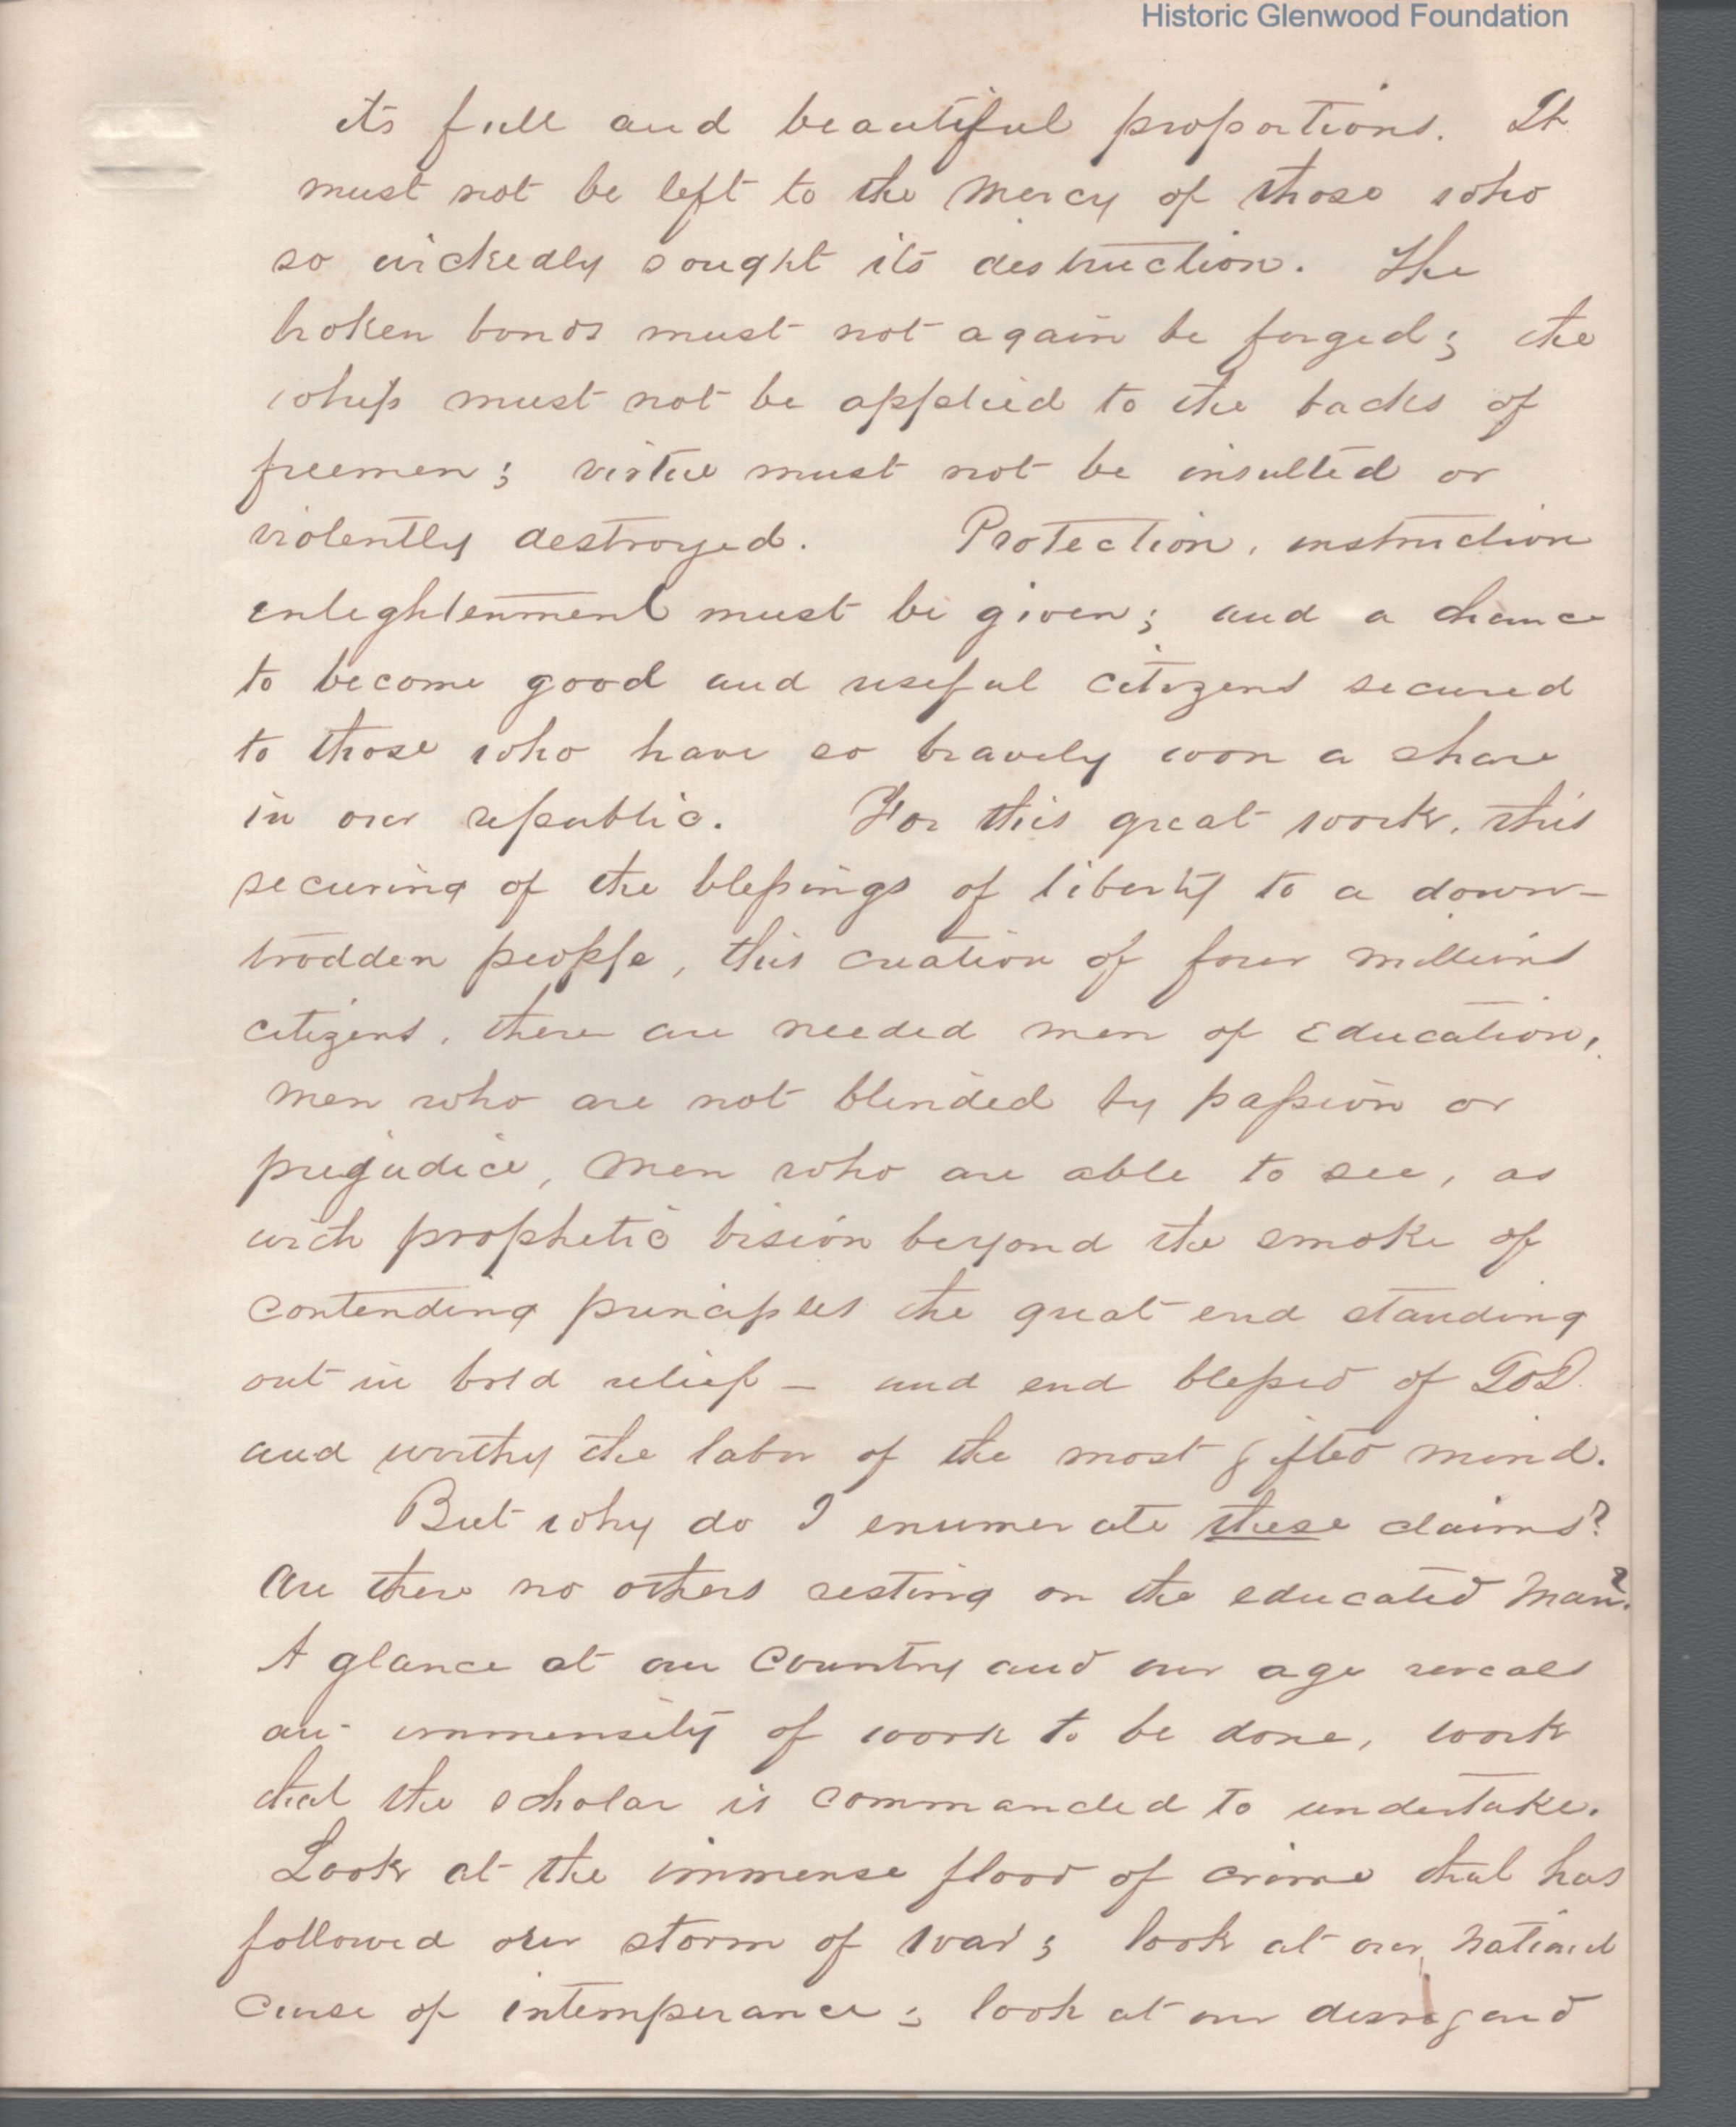 Historic Glenwood Foundation
its full and beautiful proportions. It
must not be left to the mercy of those who
so wickedly sought its destruction. The
broken bonds must not again be forged; the
whip must not be applied to the backs of
freemen; virtue must not be insulted or
violently destroyed. Protection, instruction
enlightenment must be given; and a chance
to become good and useful citizens secured
to those who have so bravely won a share
in our republic. For this great work, this
securing of the blessings of liberty to a down-
trodden people, this creation of four millions
citizens, there are needed men of education,
men who are not blinded by passion or
prejudice, men who are able to see, as
with prophetic vision beyond the smoke of
contending principles the great end standing
out in bold relief — and end blessed of GOD
and worthy the labor of the most gifted mind.
But why do I enumerate these claims?
Are there no others resting on the educated man?
A glance at our country and our age reveals
an immensity of work to be done, work
that the scholar is commanded to undertake.
Look at the immense flood of crime that has
followed our storm of war; look at our national
curse of intemperance; look at our disregard